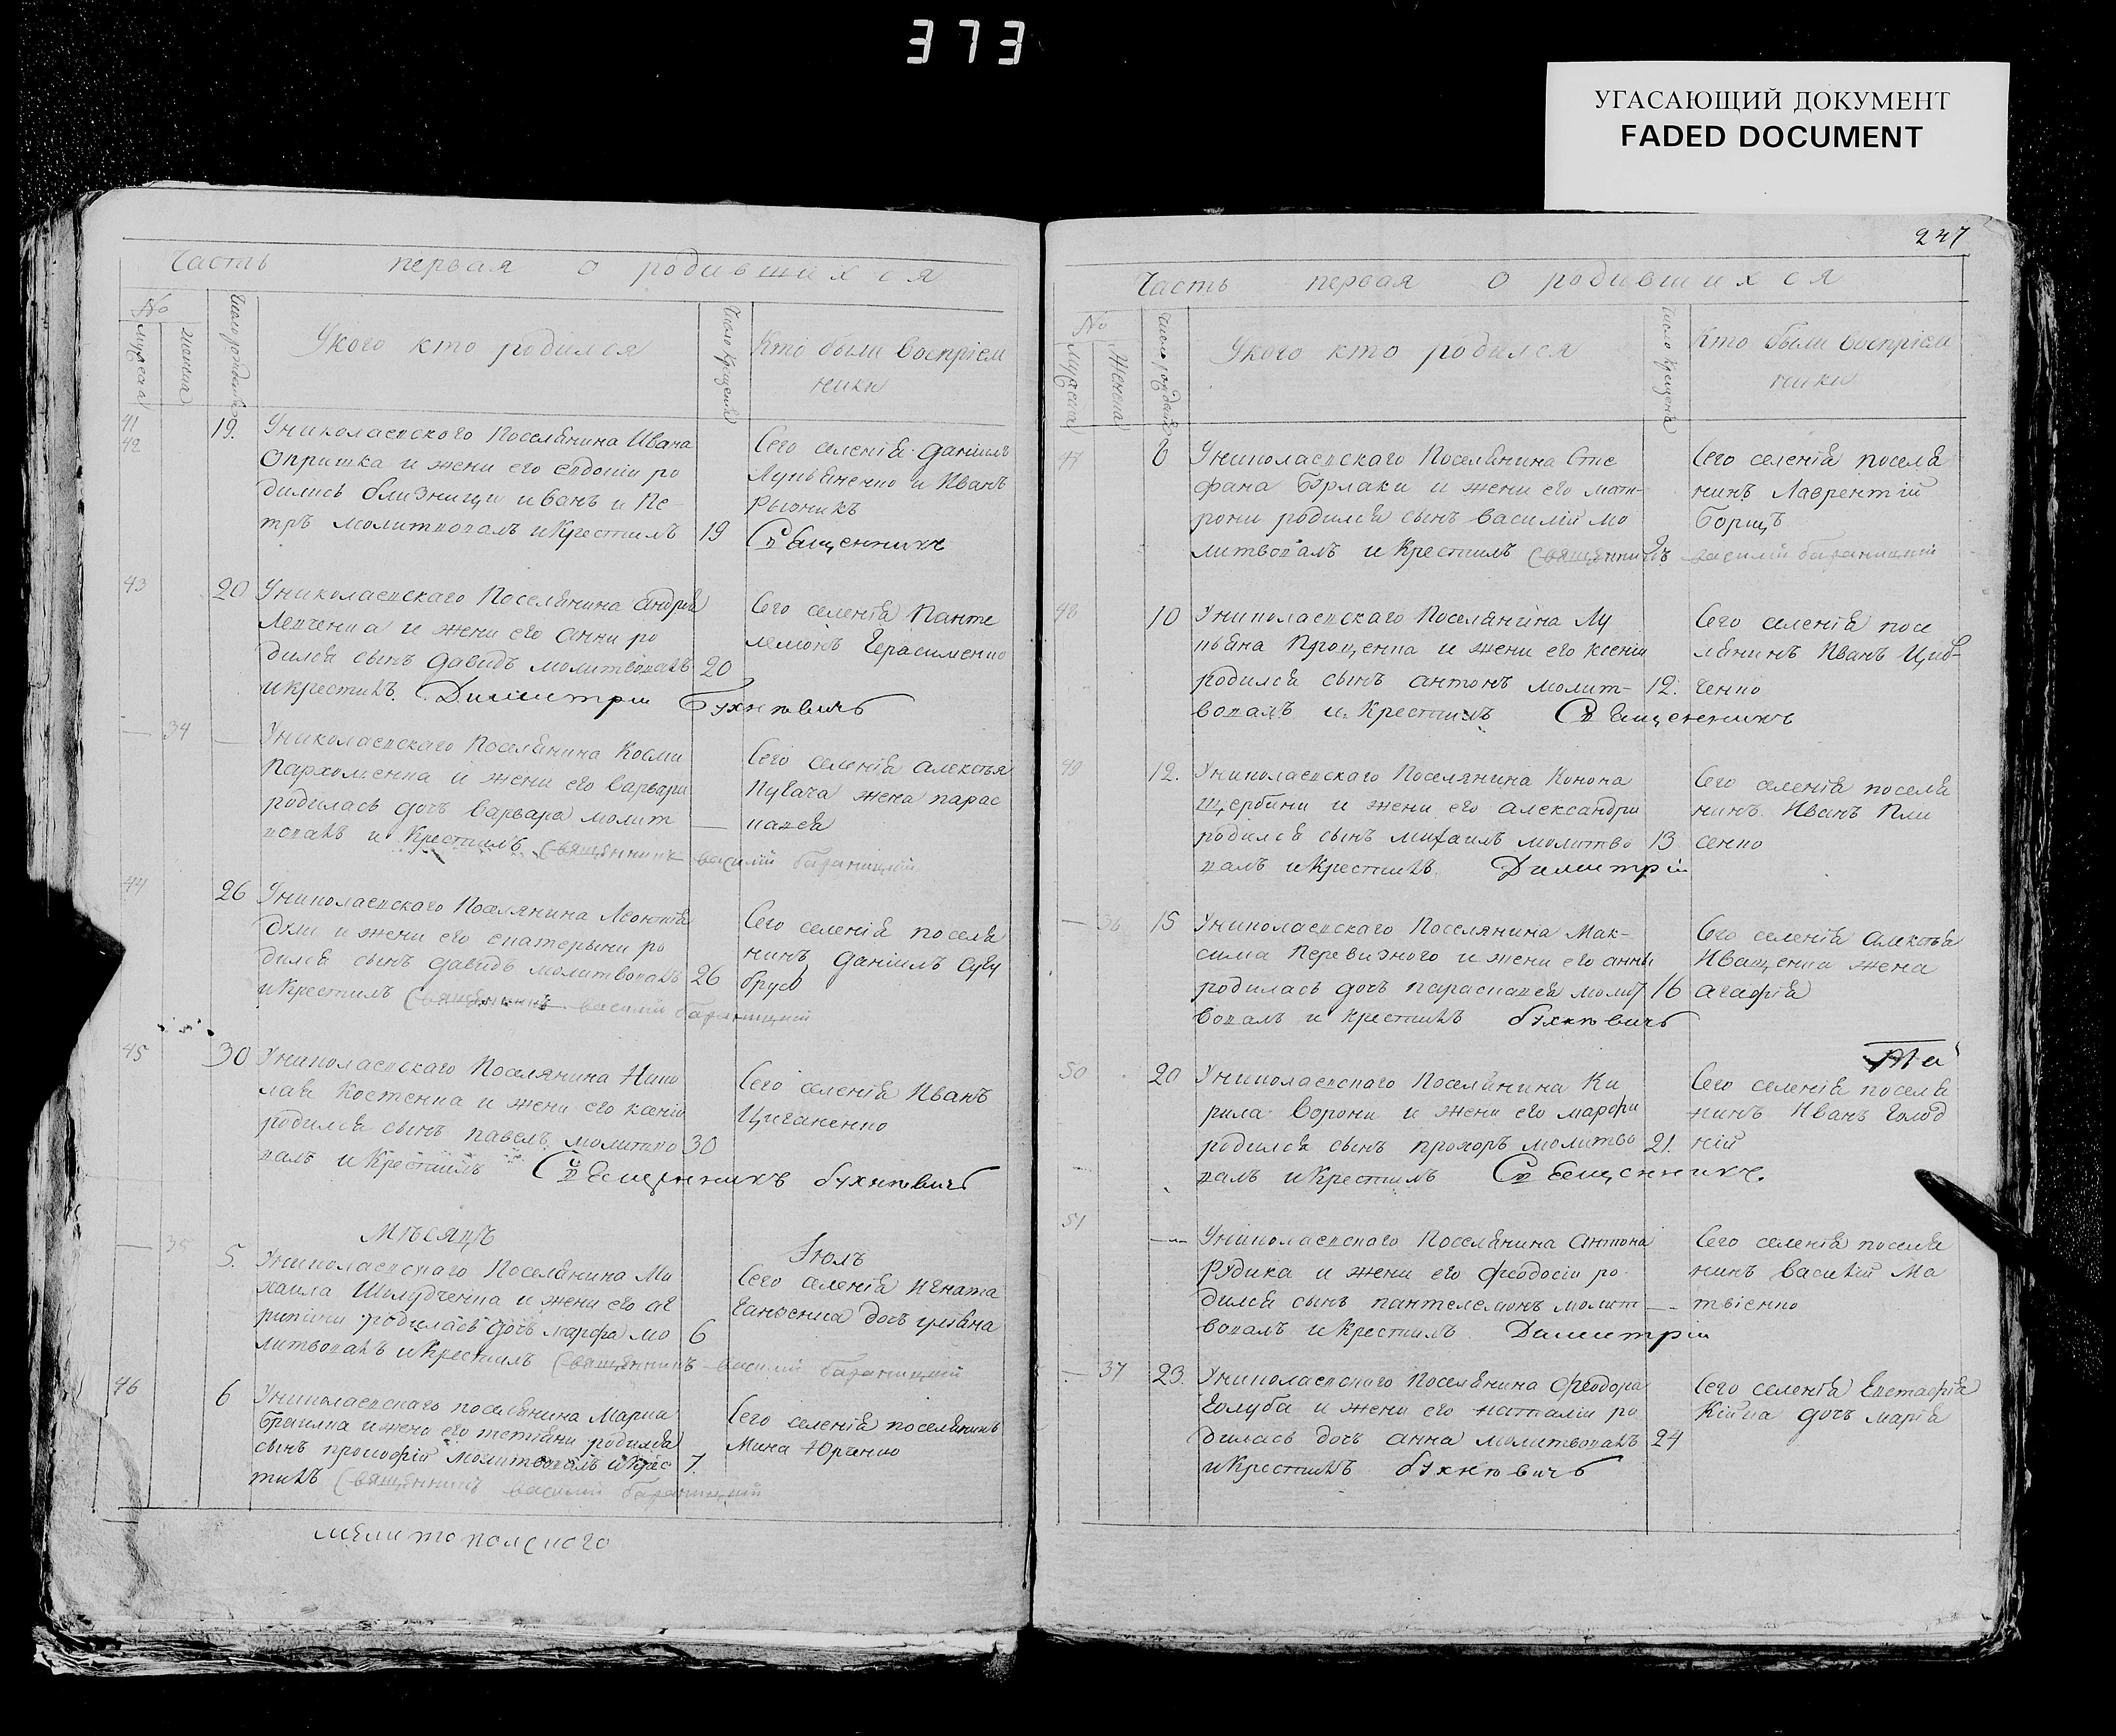 373
УГАСАЮЩИЙ ДОКУМЕНТ
FADED DOCUMENT
Часть первая о родившихся
No
мужеска
женска
Число рождения
Укого кто родился
Число Крещения
Кто были воспріем
ники
41
42
19.
Униколаевского Поселянина Ивана
Опришка и жени его евдокіи ро
дились близници иванъ и Пе-
тръ молитвовалъ икрестилъ
19
Сего селенія даніилъ
Лукьяненко и Иванъ
Рызникъ
Священникъ
43
20
Униколаевскаго Поселянина андрея
Левченка и жени его анни ро
дился сынъ давидъ молитвовалъ
икрестилъ. Димитрій Бухновичъ
20
Сего селенія Панте
лемонъ Герасименко
— 34 —
Униколаевскаго Поселянина Косми
Пархоменка и жени его варвари
родилась дочъ варвара молит
вовалъ и Крестилъ священникъ василій бараницкій
—
Сего селенія алексъя
Пугача жена парас
кавея
44
26
Униколаевскаго Поселянина Леонтія
и жени его екатерыни ро
дился сынъ давидъ молитвовалъ
икрестилъ священникъ василій бараницкій
26
Сего селенія поселя
нинъ даніилъ
45
30
Униколаевскаго Поселянина Нико
лая Костенка и жени его ксеніи
родился сынъ павелъ молитво
валъ и Крестилъ Священникъ бухновичъ
30
Сего селенія Иванъ
Циганенко
Мъсяцъ Іюль
— 35
5.
Униколаевскаго Поселянина Ми
хаила Шолудченка и жени его аг
рипіни родилась дочъ марфа мо
литвовалъ икрестилъ священникъ василій бараницкій
6
Сего селенія Игната
дочъ уліяна
46
6
Униколаевскаго поселянина Марка
Браилка ижени его тетіяни родился
сынъ прокофій молитвовалъ икрес
тилъ священникъ василій бараницкій
7.
Сего селенія поселянинъ
Мина Юрченко
мелитополского
247
Часть первая о родившихся
No
Мужеска
Женска
Число рождения
Укого кто родился
Число Крещения
Кто были воспріем
ники
47
6
Униколаевскаго Поселянина Сте
фана Бурлаки и жени его мат-
рони родился сынъ василій мо
литвовалъ и Крестилъ священникъ василій бараницкій
Сего селенія поселя
нинъ Лаврентій
Борщъ
48
10
Униколаевскаго Поселянина Лу
кьяна Прощенка и жени его ксеніи
родился сынъ антонъ молит-
вовалъ и Крестилъ Священникъ
12.
Сего селенія посе
лянинъ Иванъ Циб-
ченко
49
12.
Униколаевскаго Поселянина Конона
щербини и жени его александри
родился сынъ михаилъ молитво
валъ икрестилъ Димитрій
13
Сего селенія поселя
нинъ Иванъ Пли
сенко
— 36
15
Униколаевскаго Поселянина Мак-
сима Перевизного и жени его анны
родилась дочъ параскавея молит
вовалъ и крестилъ бухновичъ
16
Сего селенія алексъя
Иващенка жена
агафія
50
20
Униколаевскаго Поселянина Ки
рила Ворони и жени его марфи
родился сынъ прохоръ молитво
валъ икрестилъ Священникъ.
21.
Сего селенія поселя
нинъ Иванъ Голод
ній
51
—
Униколаевскаго Поселянина антона
Рудика и жени его феодосіи ро
дился сынъ пантелемонъ молит
вовалъ икрестилъ Димитрій
—
Сего селенія поселя
нинъ василій Ма
твіенко
— 37
23.
Униколаевскаго Поселянина феодора
Голуба и жени его наталіи ро
дилась дочъ анна молитвовалъ
икрестилъ бухновичъ
24
Сего селенія Евстафія
Кійка дочъ марія